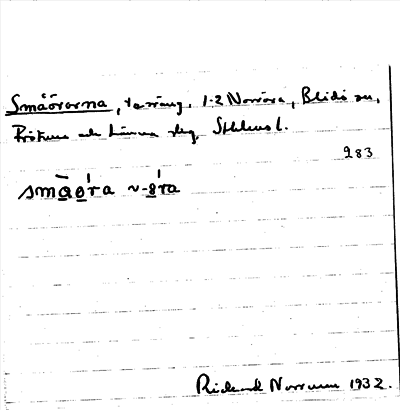 Småörarna, terräng, 1-2 Norröra, Blidö sn,
och Länna skg. Sthlms l.
283
småöra ~-öra
Rickard Norrman 1932.